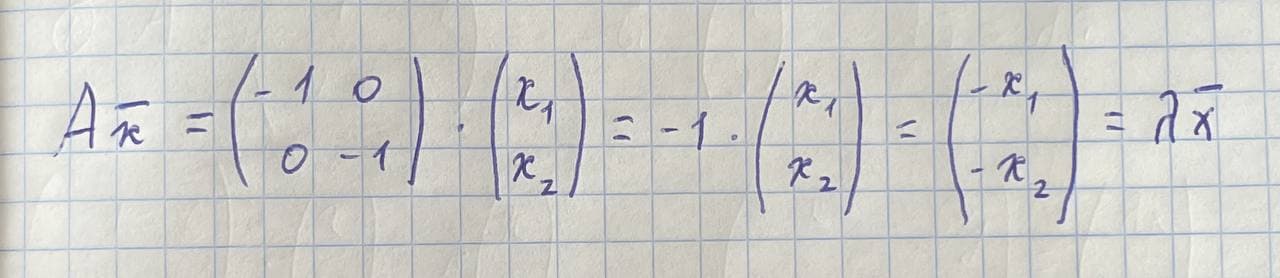 Ax̄ = (-1 0 0 -1) · (x₁ x₂) = -1 · (x₁ x₂) = (-x₁ -x₂) = λx̄